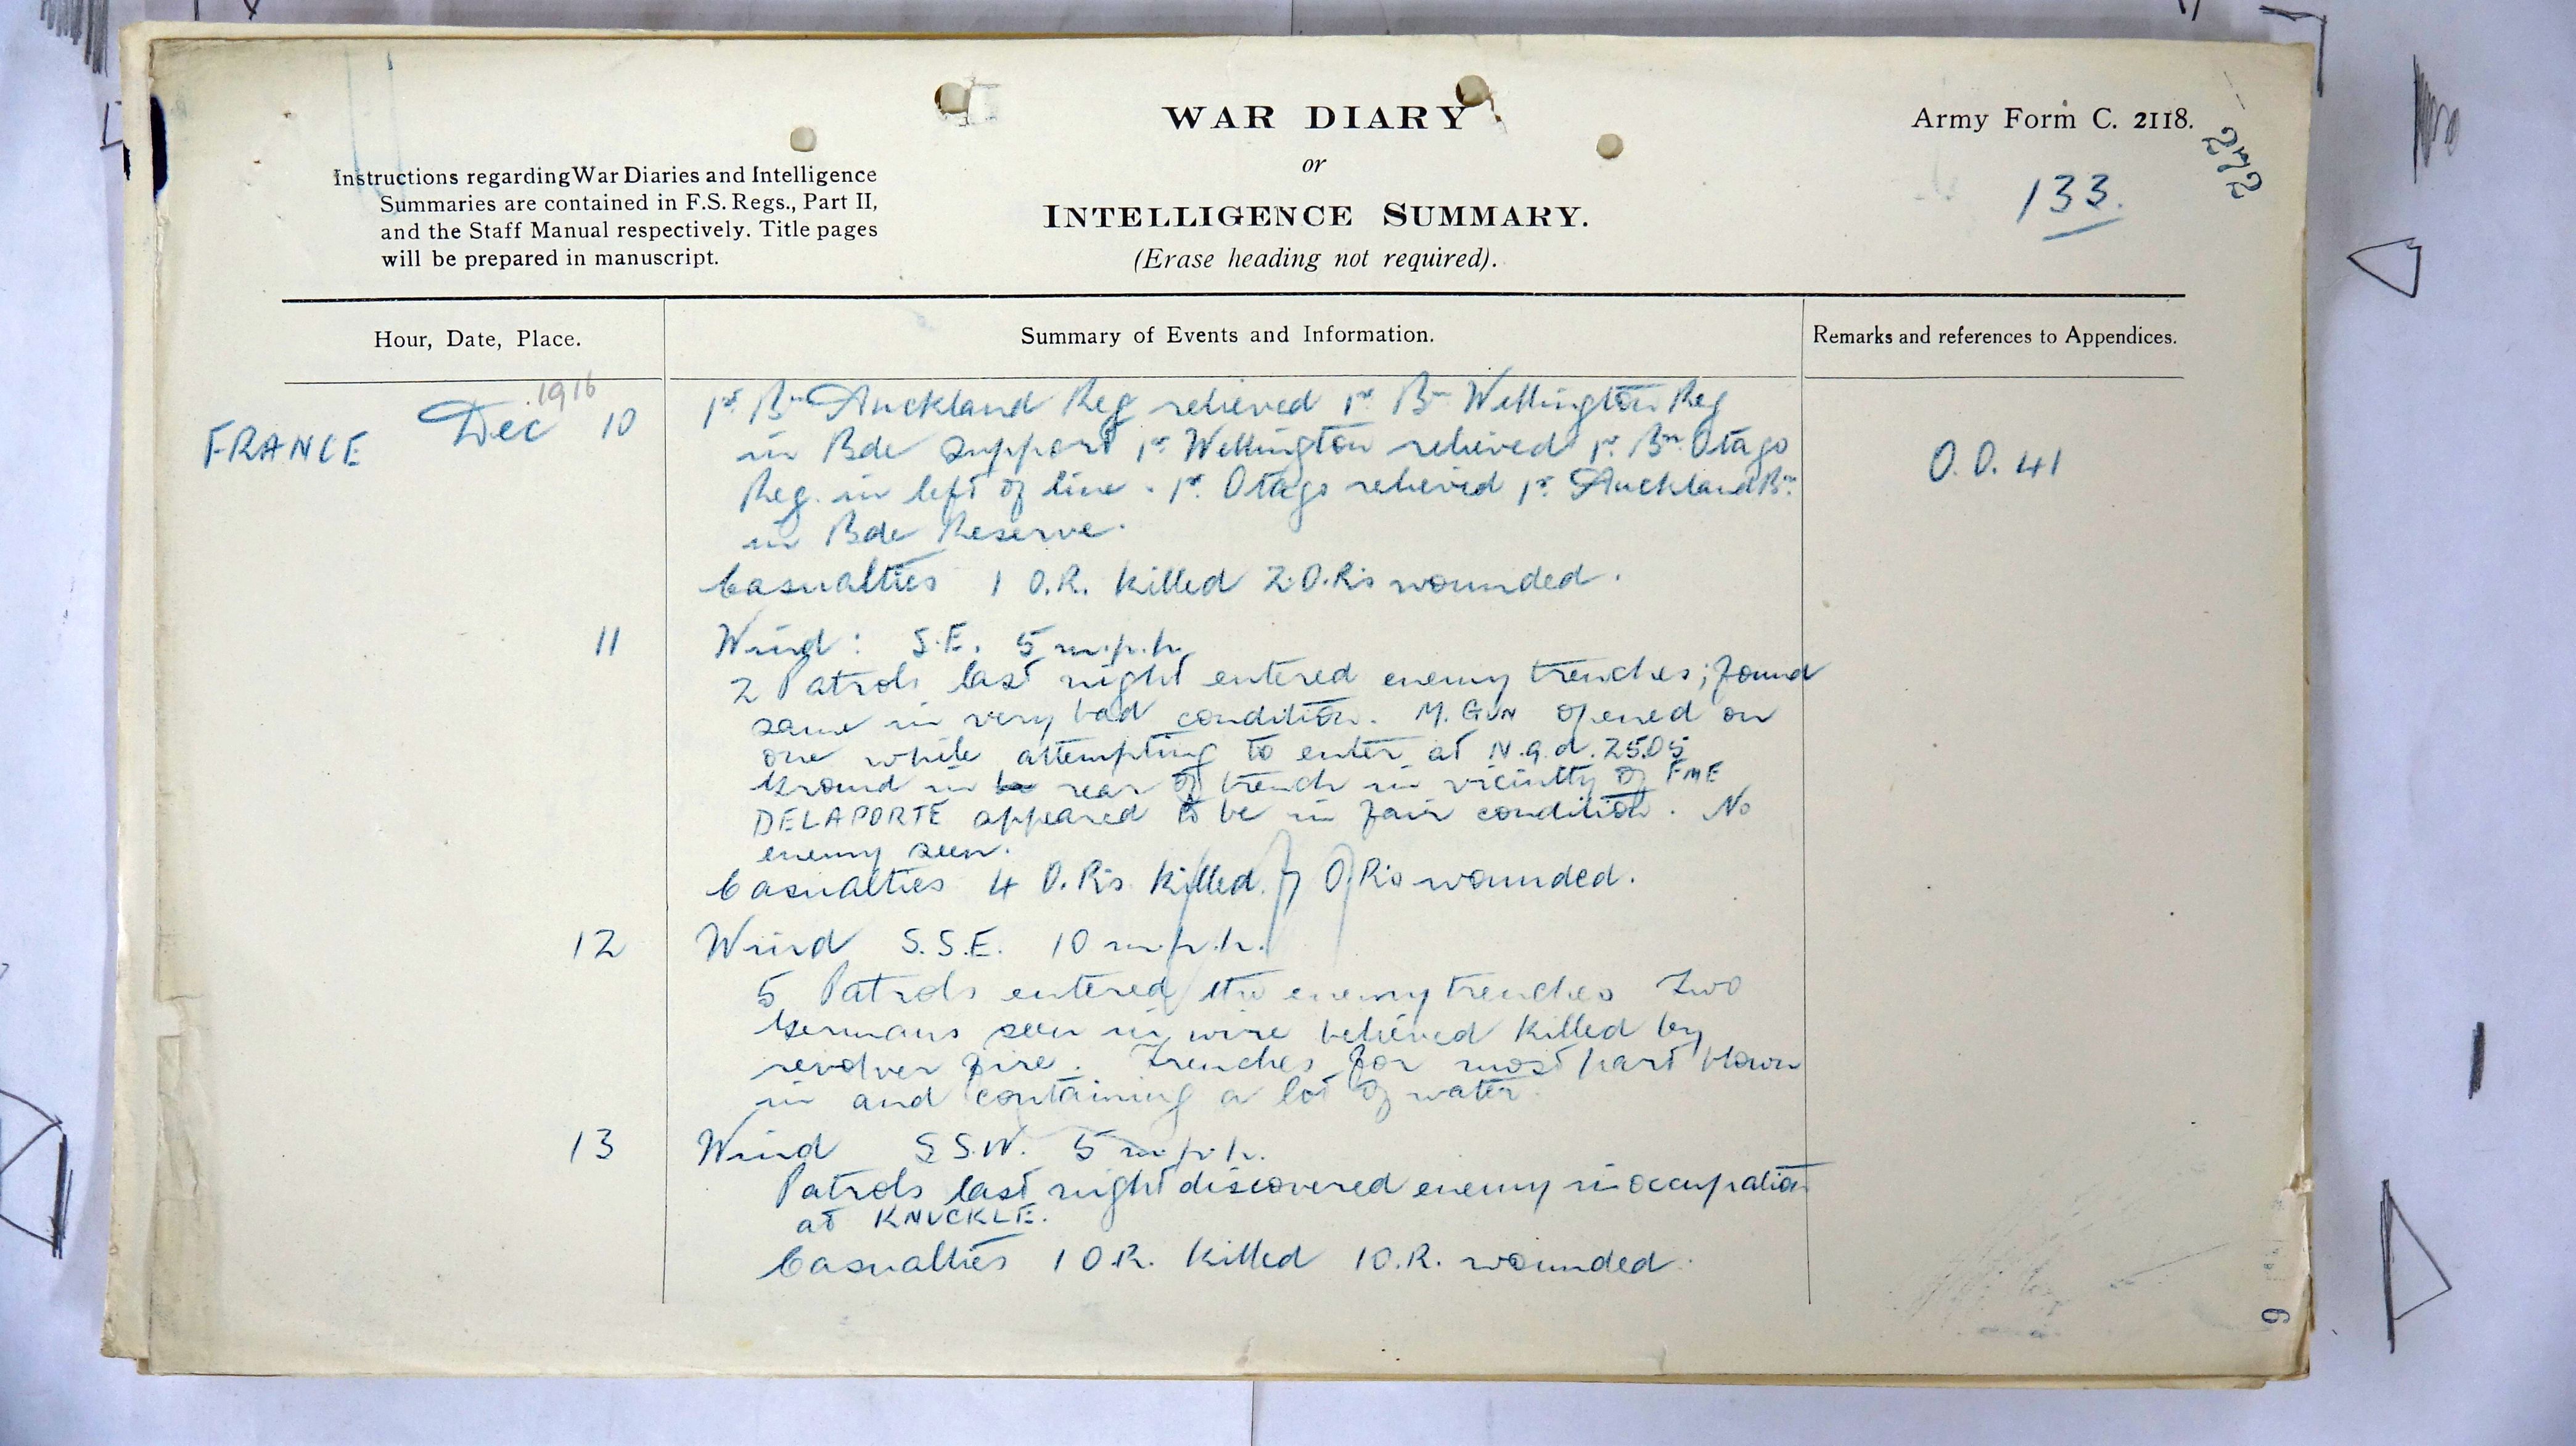 WAR DIARY
or
INTELLIGENCE SUMMARY.
(Erase heading not required).
Army Form C. 2118.
133.
272
Instructions regarding War Diaries and Intelligence
Summaries are contained in F.S. Regs., Part II,
and the Staff Manual respectively. Title pages
will be prepared in manuscript.
Hour, Date, Place.
Summary of Events and Information.
Remarks and references to Appendices.
1916
FRANCE Dec 10
1st Bn Auckland Reg relieved 1st Bn Wellington Reg
in Bde support 1st Wellington relieved 1st Bn Otago
Reg. in left of line. 1st Otago relieved 1st Auckland Bn
in Bde Reserve.
O.O. 41
Casualties 1 O.R. killed 2.O.Rs wounded.
11 Wind: S.E. 5 m.p.h.
2 Patrols last night entered enemy trenches; found
same in very bad condition. M. GUN opened on
one while attempting to enter at N.9.d.25.05
Ground in rear of trench in vicinity of FME
DELAPORTE appeared to be in fair condition. No
enemy seen.
Casualties 4 O.Rs killed. 7 O.Rs wounded.
12 Wind S.S.E. 10 m.p.h.
5 Patrols entered the enemy trenches Two
Germans seen in wire believed killed by
revolver fire. Trenches for most part blown
in and containing a lot of water.
13 Wind S S.W. 5 m.p.h.
Patrols last night discovered enemy in occupation
at KNUCKLE.
Casualties 1 O.R. killed 1 O.R. wounded.
9